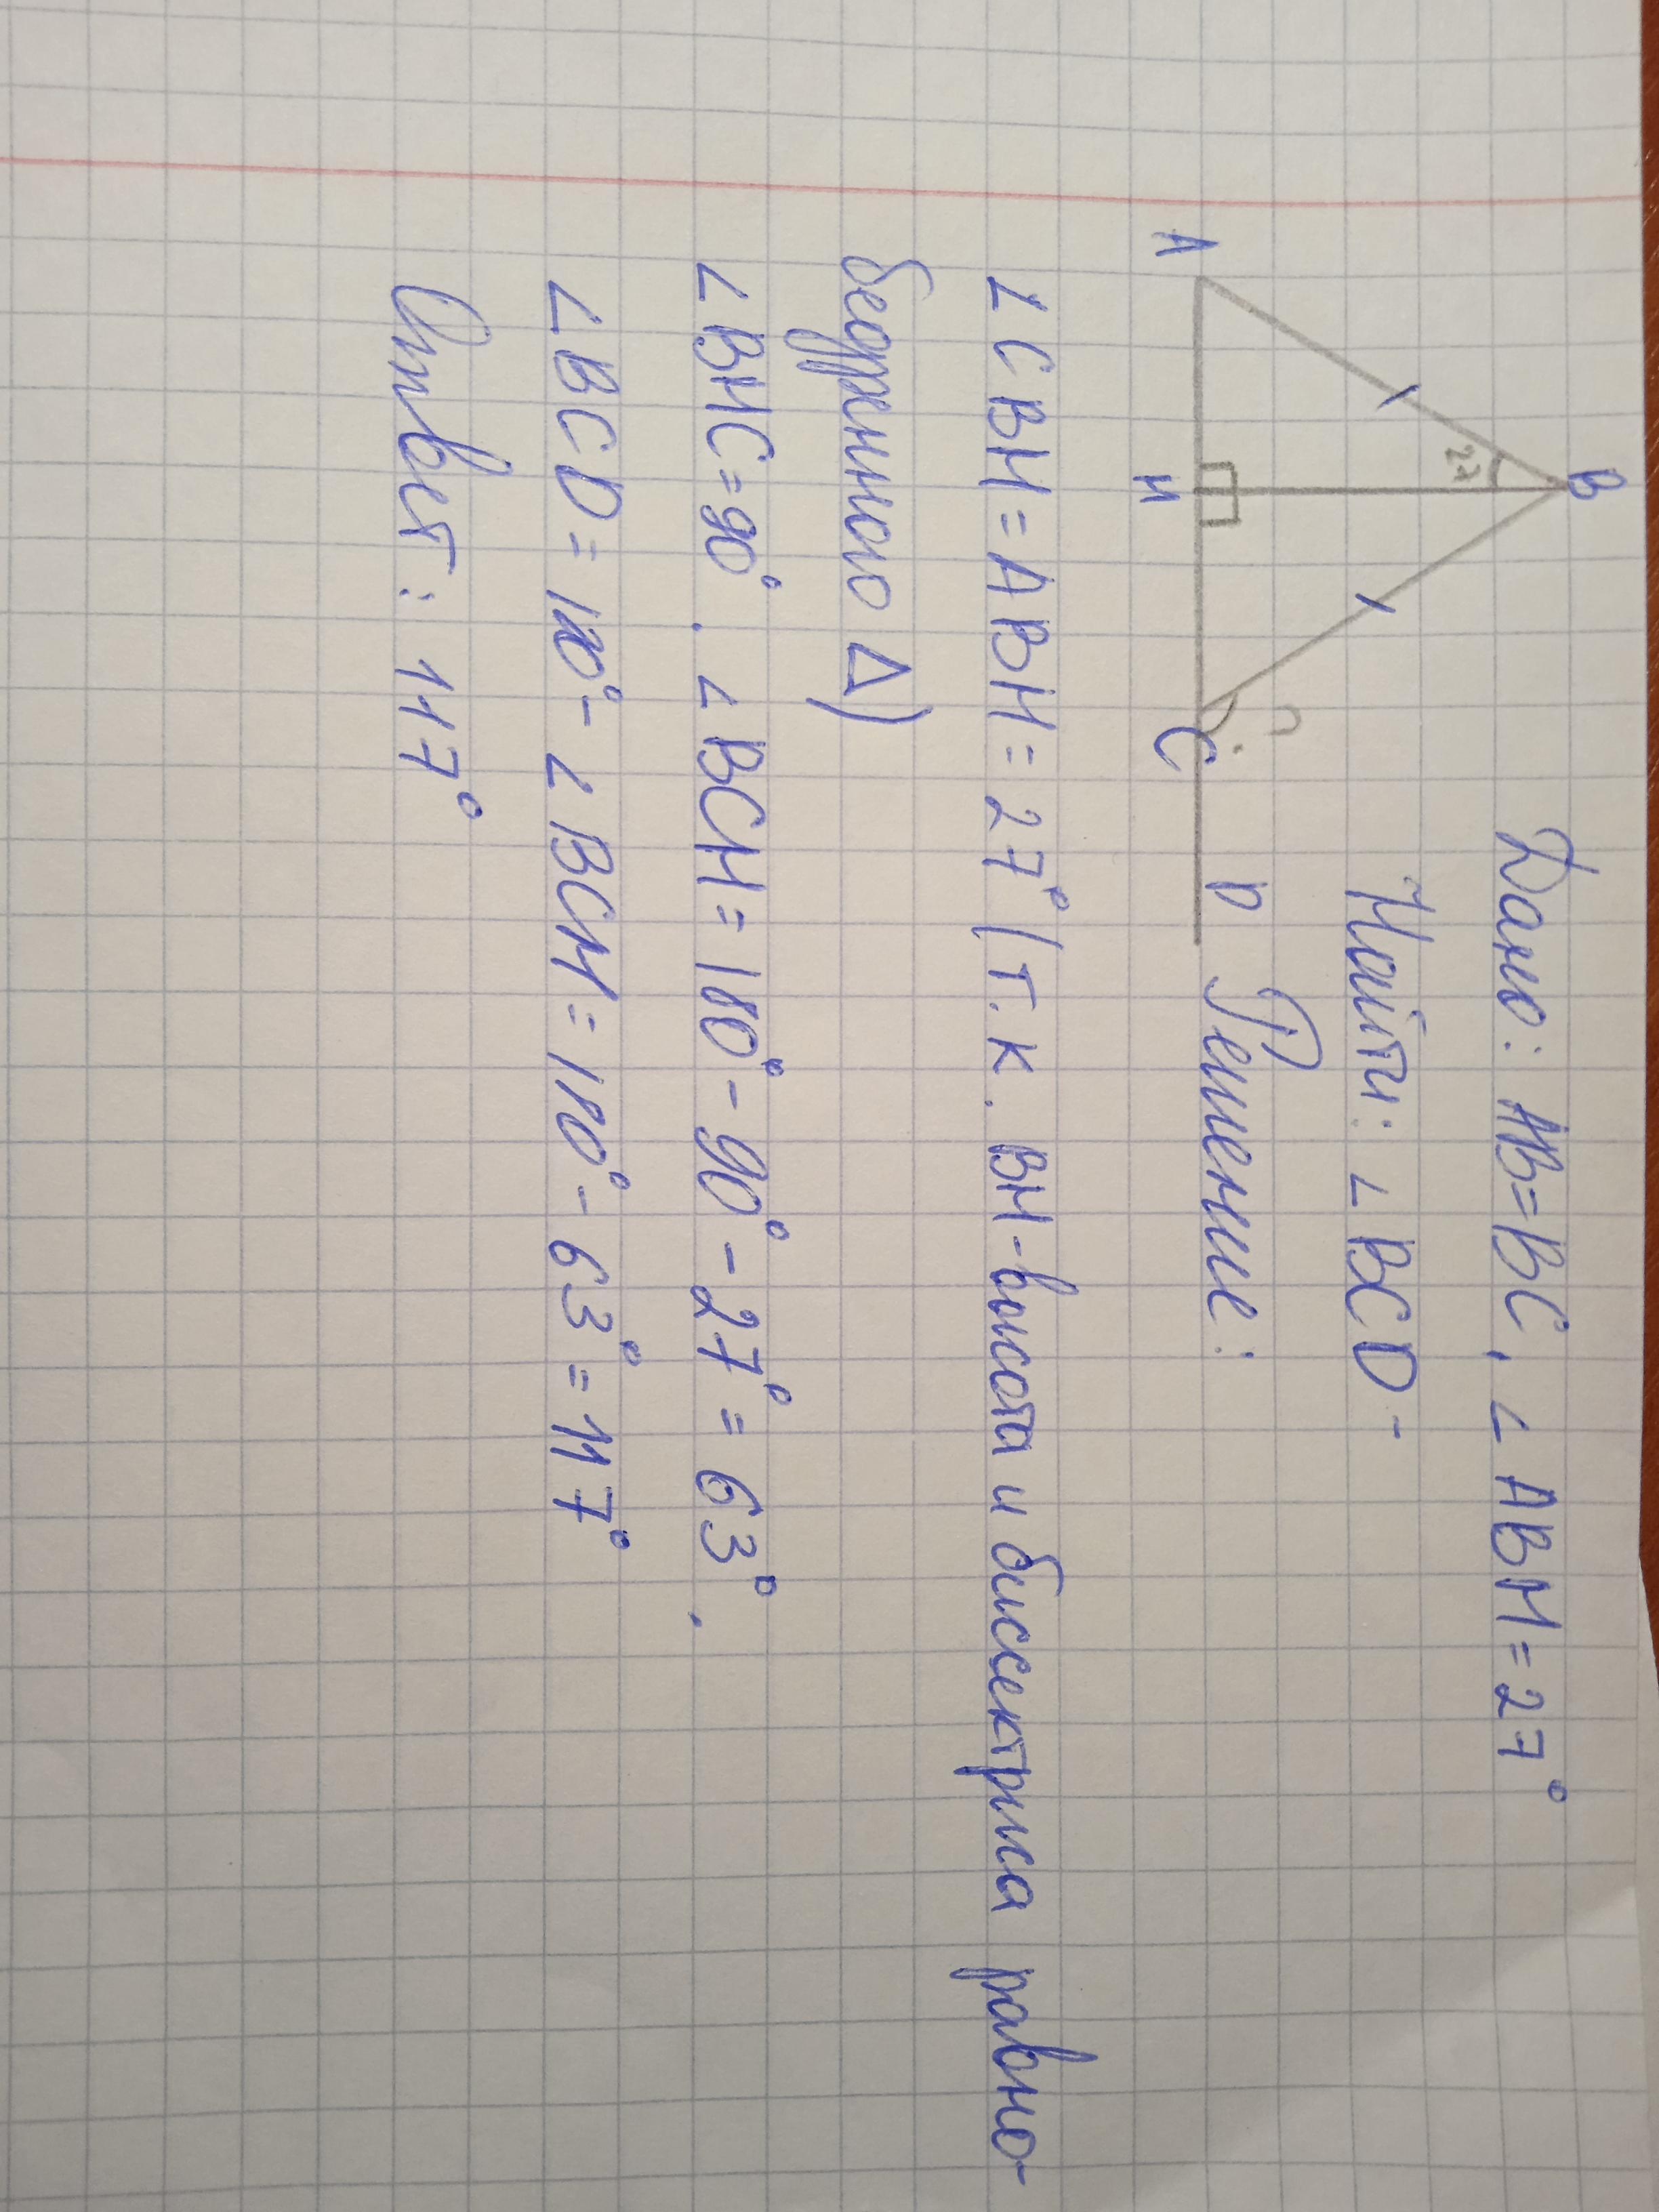 Дано: AB=BC, ∠ABH=27°
Найти: ∠BCD-
Решение:
B
27
A
H
C
?
D
∠CBH=ABH=27° (т.к. BH-высота и биссектриса равно-
бедренного Δ)
∠BHC=90°. ∠BCH=180°-90°-27°=63°.
∠BCD=180°-∠BCH=180°-63°=117°
Ответ: 117°